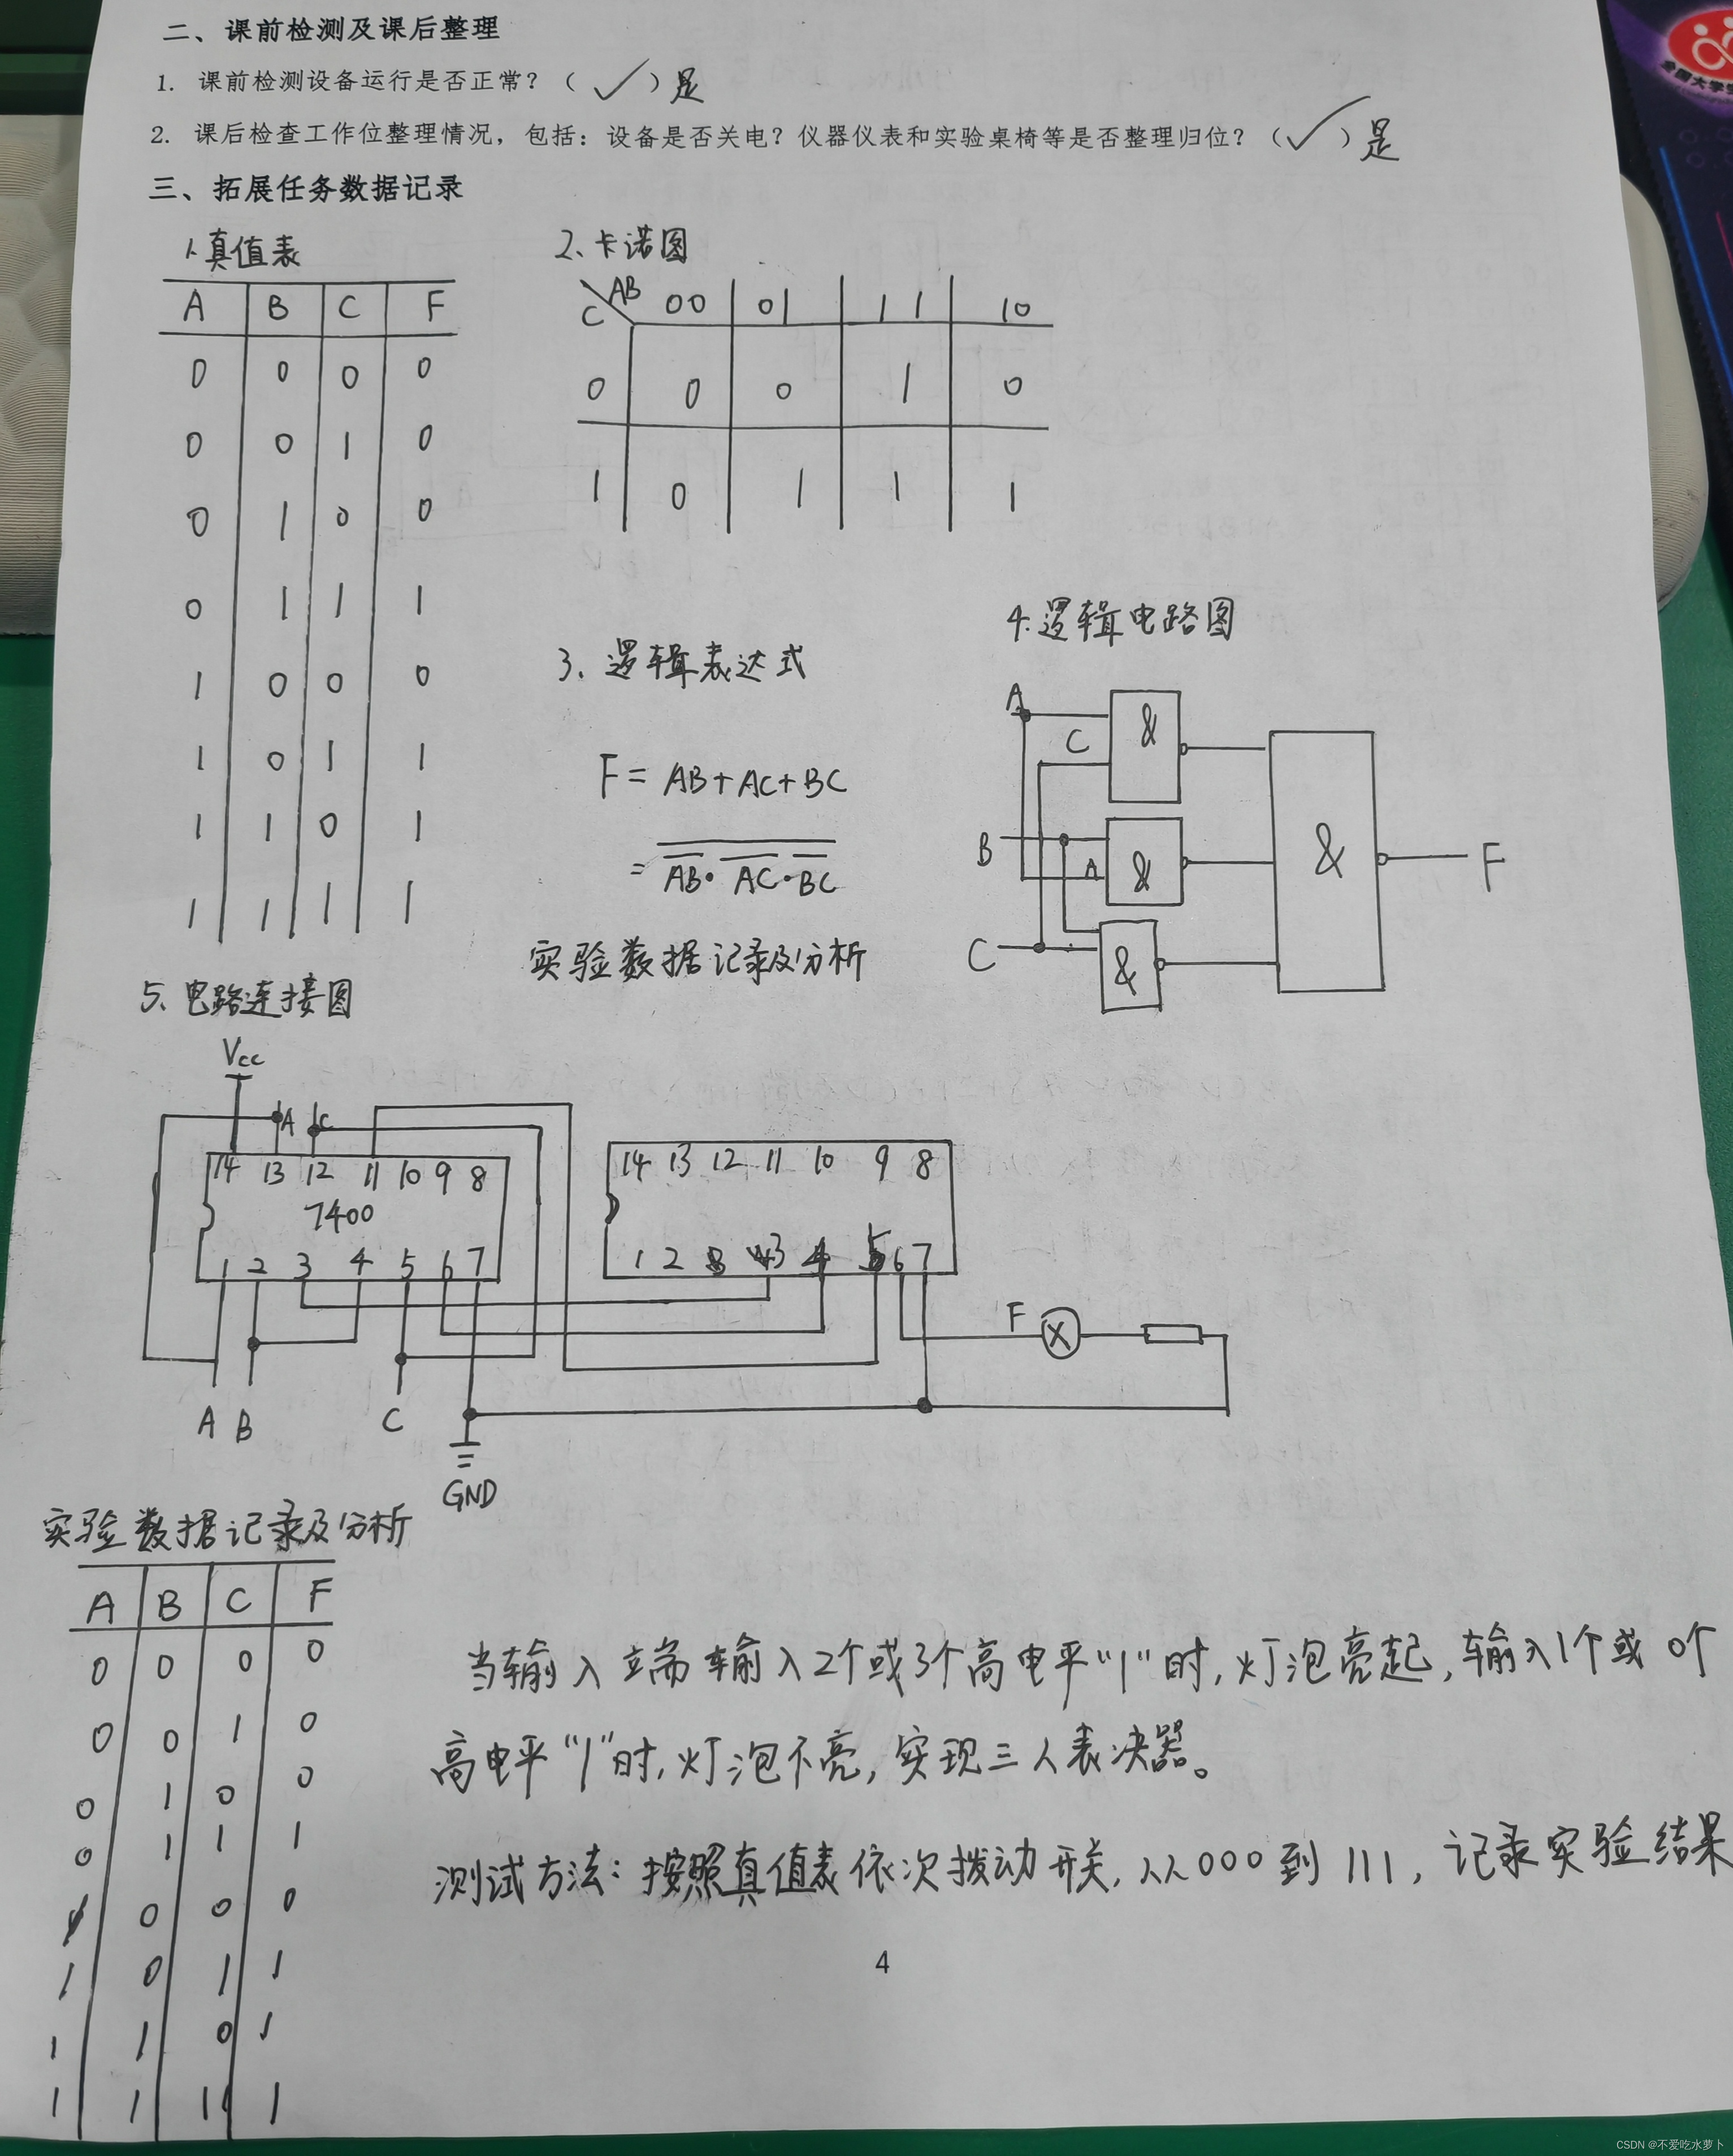 二、课前检测及课后整理
1. 课前检测设备运行是否正常？（ ✓ ）是
2. 课后检查工作位整理情况，包括：设备是否关电？仪器仪表和实验桌椅等是否整理归位？（ ✓ ）是
三、拓展任务数据记录
1.真值表
A B C F
0 0 0 0
0 0 1 0
0 1 0 0
0 1 1 1
1 0 0 0
1 0 1 1
1 1 0 1
1 1 1 1
2、卡诺图
AB 00 01 11 10
C
0 0 0 1 0
1 0 1 1 1
3、逻辑表达式
F = AB+AC+BC
= \overline{\overline{AB}·\overline{AC}·\overline{BC}}
实验数据记录及分析
4.逻辑电路图
A
C &
B
A & & F
C &
5、电路连接图
Vcc
A C
14 13 12 11 10 9 8
7400
1 2 3 4 5 6 7
14 13 12 11 10 9 8
1 2 3 4 5 6 7
F
A B C
GND
实验数据记录及分析
A B C F
0 0 0 0
0 0 1 0
0 1 0 0
0 1 1 1
1 0 0 0
1 0 1 1
1 1 0 1
1 1 1 1
当输入端输入2个或3个高电平“1”时，灯泡亮起，输入1个或0个
高电平“1”时，灯泡不亮，实现三人表决器。
测试方法：按照真值表依次拨动开关，从000到111，记录实验结果
4
全国大学
CSDN @不爱吃水萝卜